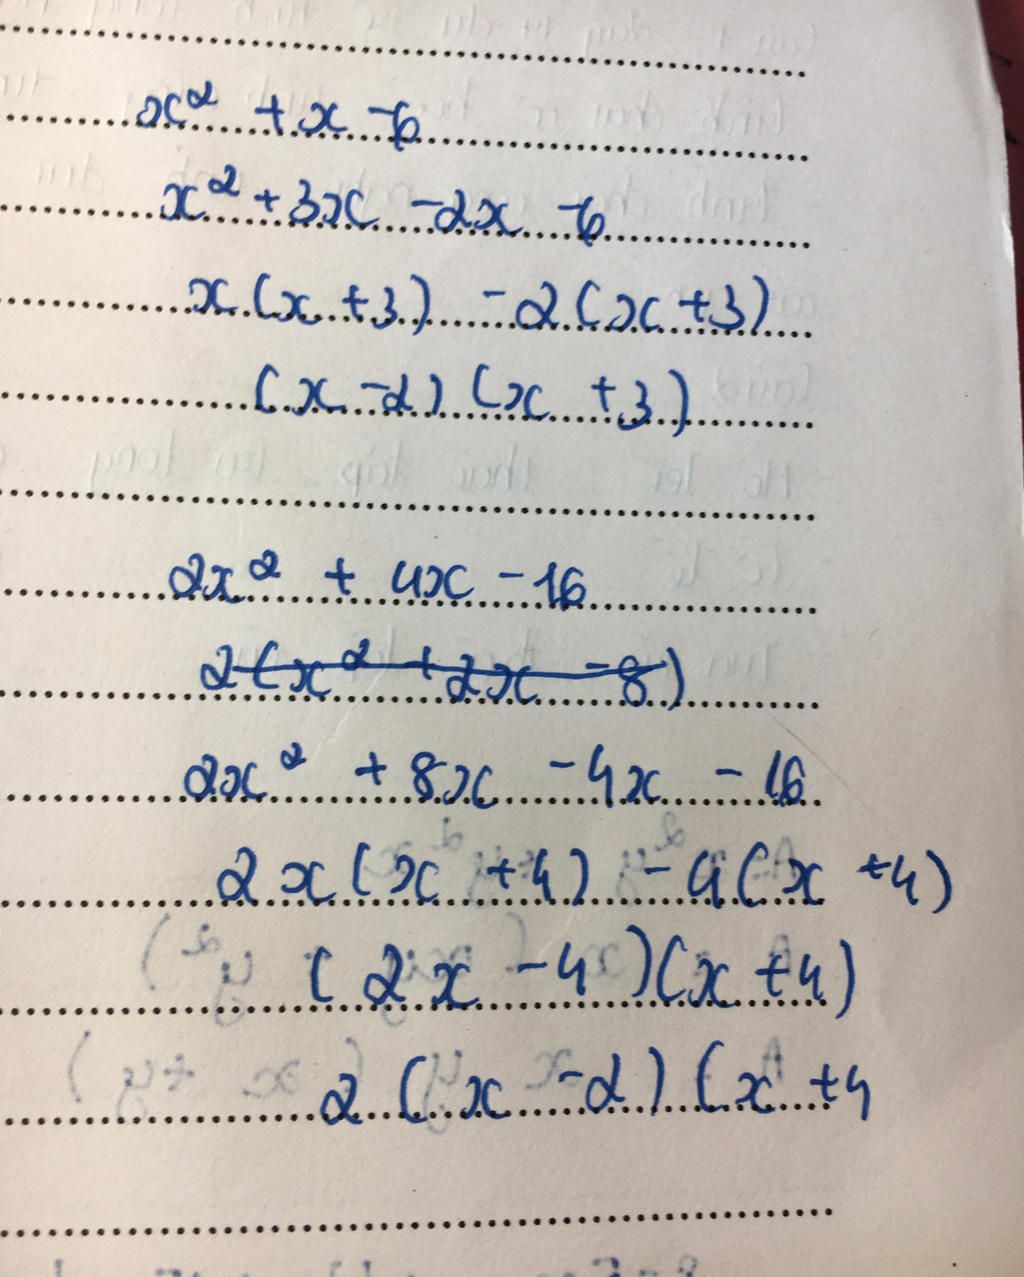 x² + x - 6
x² + 3x - 2x - 6
x(x + 3) - 2(x + 3)
(x - 2)(x + 3)
2x² + 4x - 16
2(x² + 2x - 8)
2x² + 8x - 4x - 16
2x(x + 4) - 4(x + 4)
(2x - 4)(x + 4)
2(x - 2)(x + 4